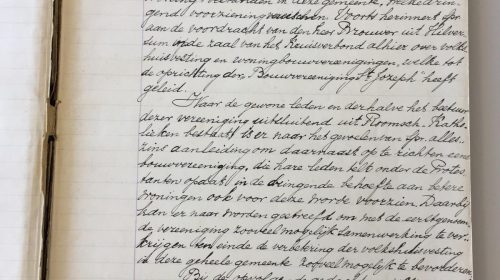 woning voorhanden in deze gemeente, welke drin-
gend voorziening eischen. Voorts herinnert spr.
aan de voordracht van den heer Brouwer uit Hilver-
sum in de zaal van het Kruisverbond alhier over volks-
huisvesting en woningbouwvereenigingen, welke tot
de oprichting der "Bouwvereeniging St. Joseph" heeft
geleid.
Waar de gewone leden en derhalve het bestuur
dezer vereeniging uitsluitend uit Roomsch-Katho-
lieken bestaat is er naar het gevoelen van spr. alles-
zins aanleiding om daarnaast op te richten eene
bouwvereeniging, die hare leden telt onder de Protes-
tanten opdat in de dringende behoefte aan betere
woningen ook voor deze worde voorzien. Daarbij
kan er naar worden gestreefd om met de eerstgenoem-
de vereeniging zooveel mogelijk samenwerking te ver-
krijgen ten einde de verbetering der volkshuisvesting
in deze geheele gemeente zooveel mogelijk te bevorderen.